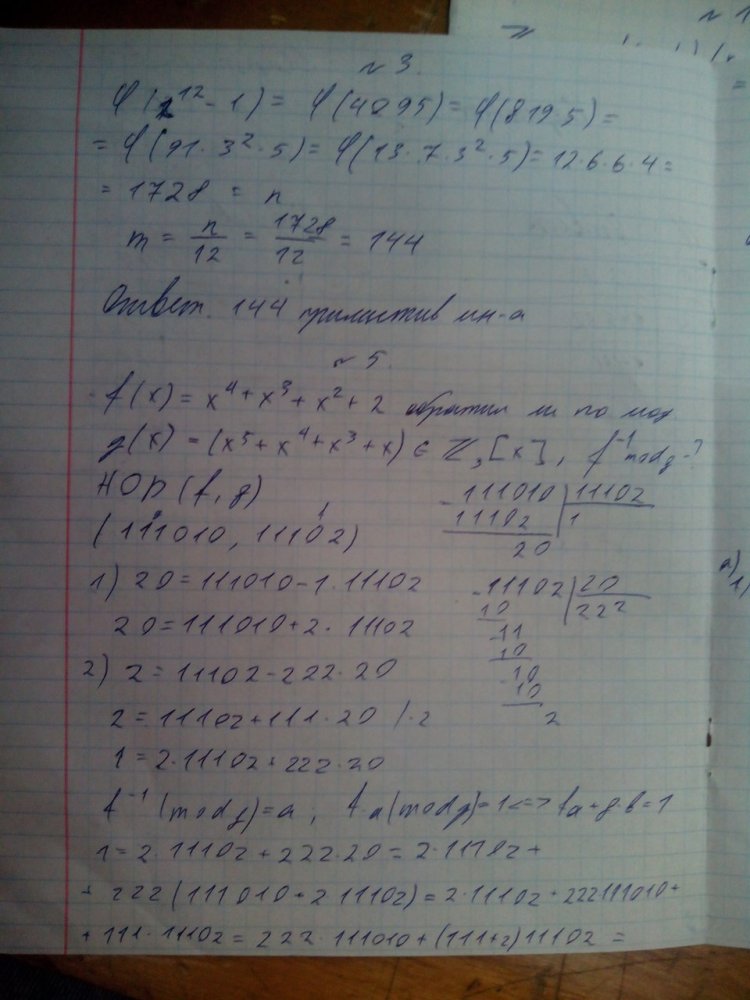 № 3.
φ(2¹² - 1) = φ(4095) = φ(819·5) =
= φ(91·3²·5) = φ(13·7·3²·5) = 12·6·6·4 =
= 1728 = n
m = n/12 = 1728/12 = 144
Ответ. 144 примитив мн-а
№ 5.
f(x) = x⁴ + x³ + x² + 2 обратим ли по мод
g(x) = (x⁵ + x⁴ + x³ + x) ∈ ℤ₃[x], f⁻¹ mod g - ?
НОД (f, g)
(111010, 11102)
111010 | 11102
11102 | 1
20
1) 20 = 111010 - 1·11102
20 = 111010 + 2·11102
11102 | 20
10 | 222
11
10
10
10
2
2) 2 = 11102 - 222·20
2 = 11102 + 111·20 /·2
1 = 2·11102 + 222·20
f⁻¹ (mod g) = a, f·a (mod g) = 1 <=> fa + g·b = 1
1 = 2·11102 + 222·20 = 2·11102 +
+ 222 (111010 + 2·11102) = 2·11102 + 222·111010 +
+ 111·11102 = 222·111010 + (111+2)11102 =